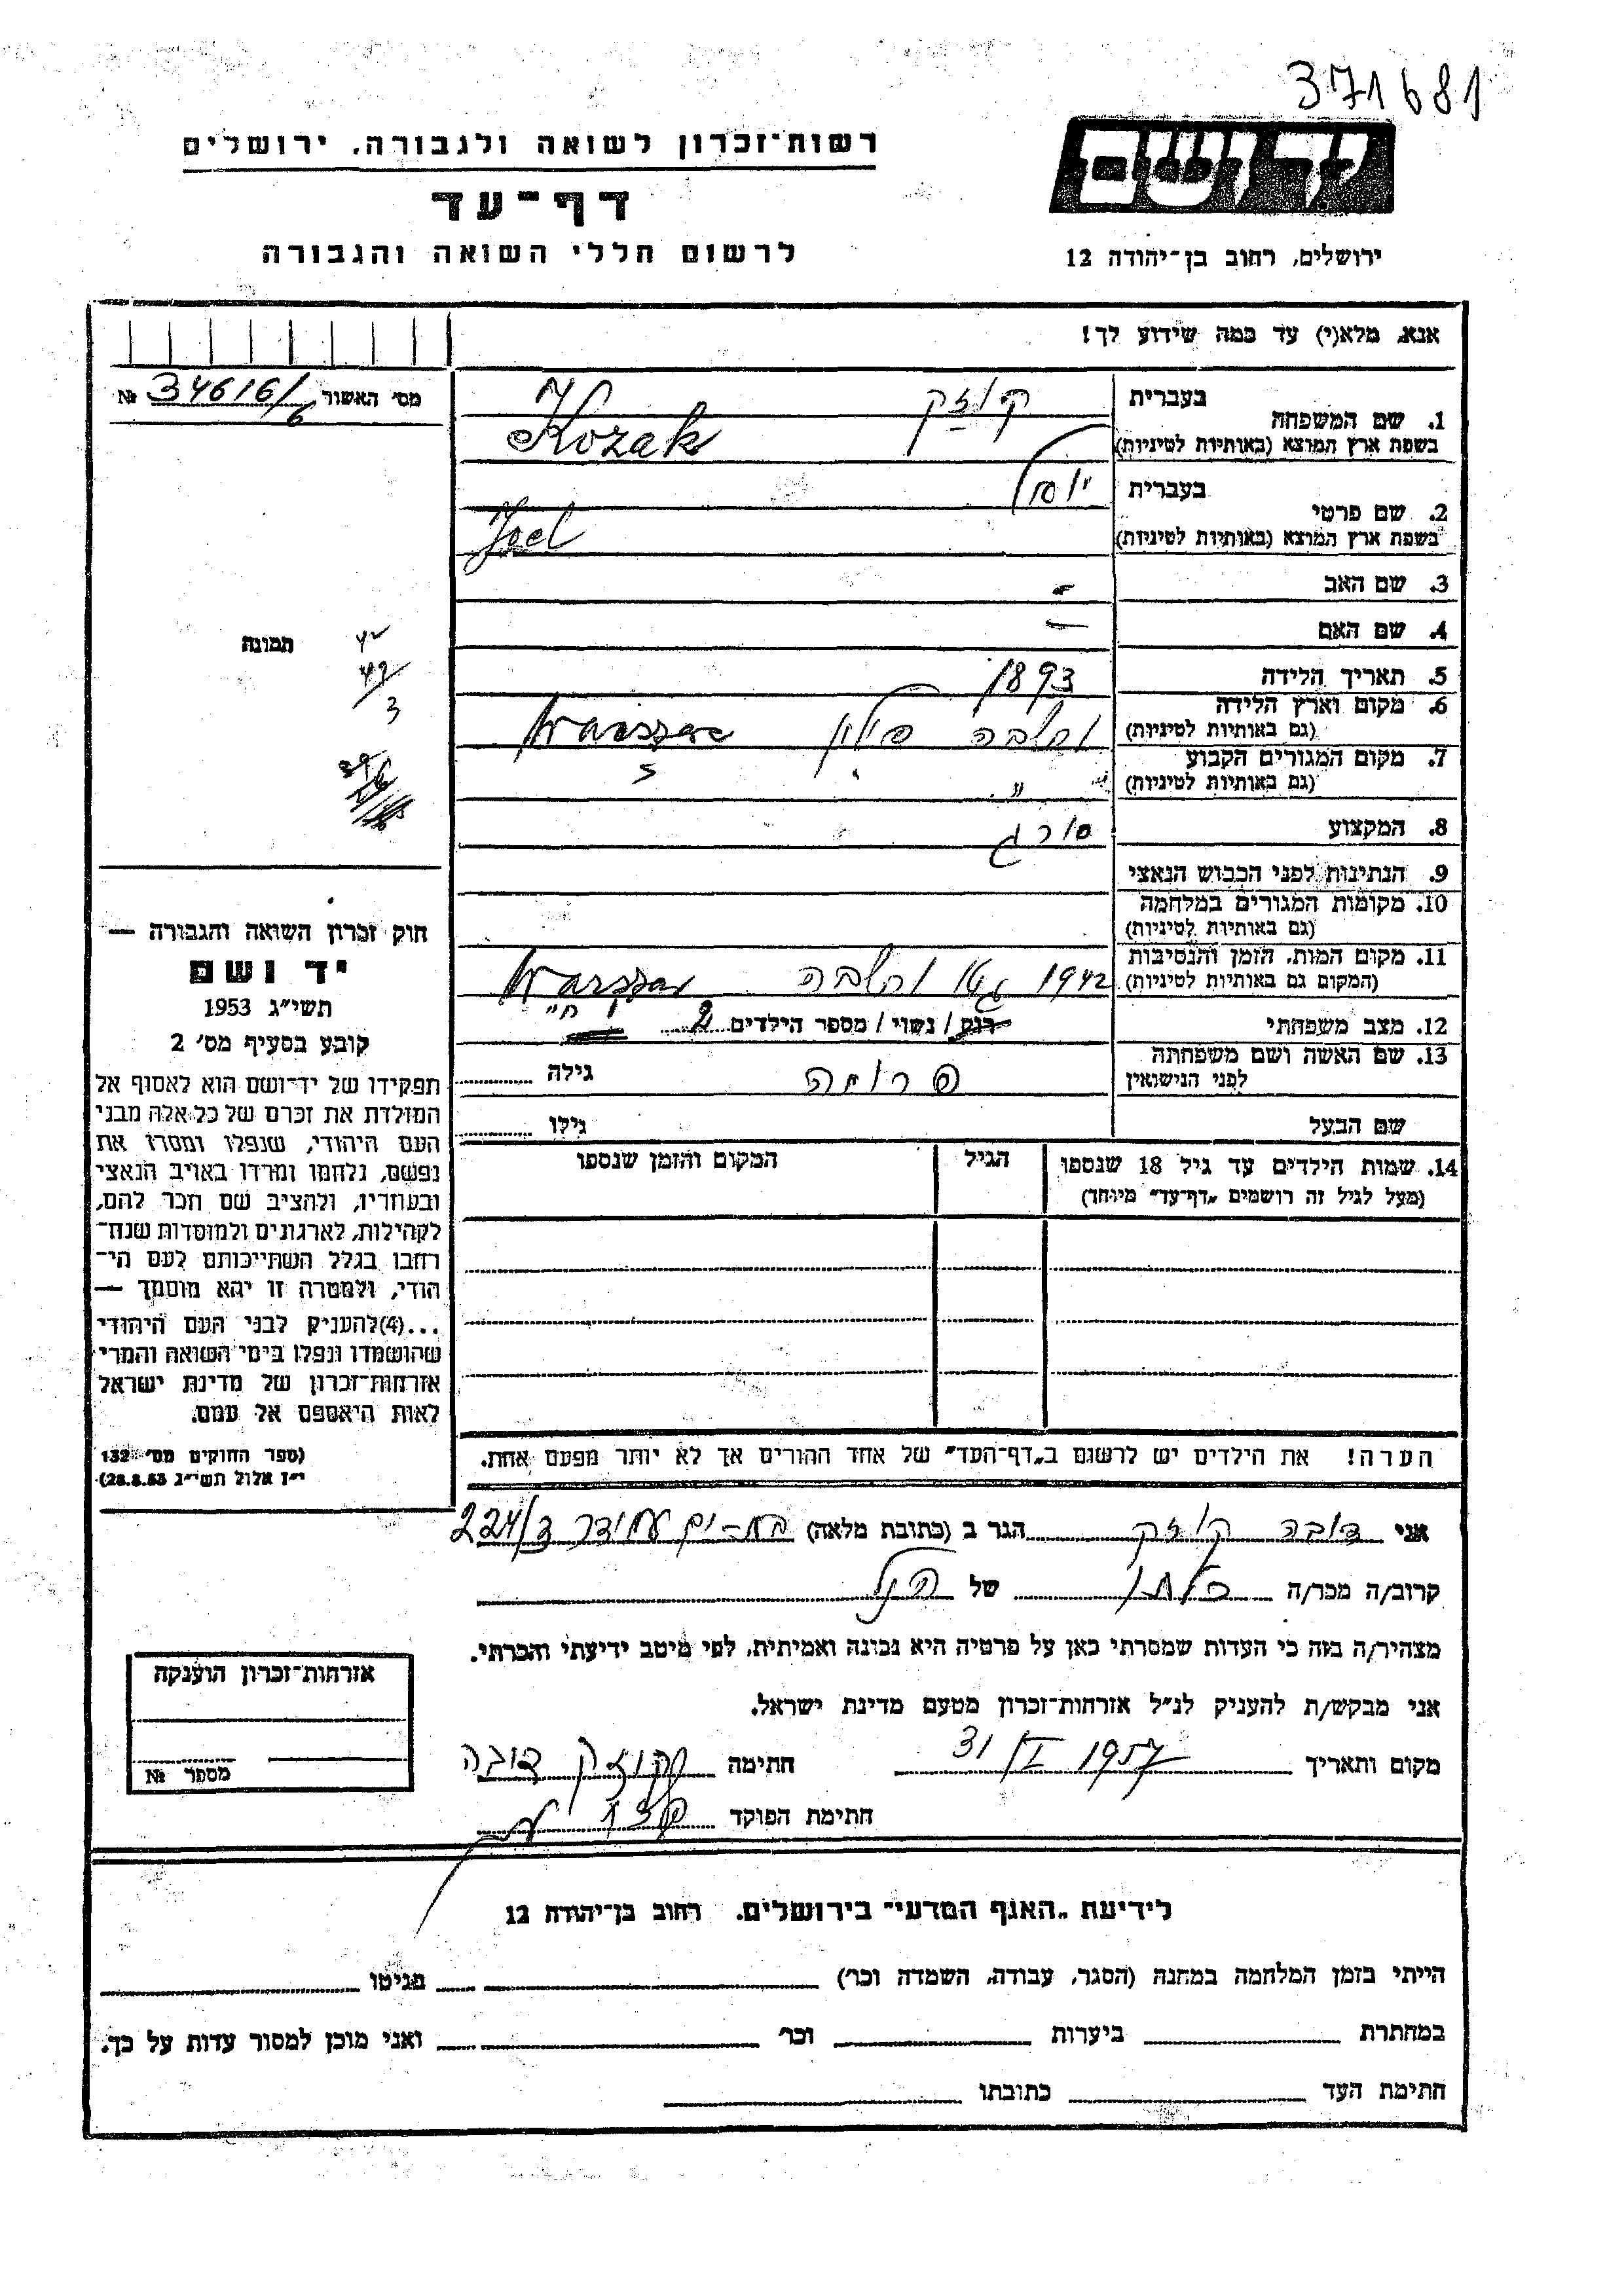 371681
רשות־זכרון לשואה ולגבורה, ירושלים
יד ושם
דף־עד
לרשום חללי השואה והגבורה
ירושלים, רחוב בן־יהודה 12
אנא, מלא(י) עד כמה שידוע לך!
מס׳ האשור № 34616/6
1. שם המשפחה בעברית קוזק
בשפת ארץ המוצא (באותיות לטיניות) Kozak
2. שם פרטי בעברית יוסל
בשפת ארץ המוצא (באותיות לטיניות) Joel
3. שם האב -
4. שם האם -
5. תאריך הלידה 1893
6. מקום וארץ הלידה (גם באותיות לטיניות) ורשבה פולין Warszawa
7. מקום המגורים הקבוע (גם באותיות לטיניות) "
8. המקצוע סורג
9. הנתינות לפני הכבוש הנאצי
10. מקומות המגורים במלחמה (גם באותיות לטיניות)
11. מקום המות, הזמן והנסיבות (המקום גם באותיות לטיניות) 1942 גטו ורשבה
12. מצב משפחתי רוק / נשוי / מספר הילדים 2
13. שם האשה ושם משפחתה לפני הנישואין פרומה גילה
שם הבעל גילו
14. שמות הילדים עד גיל 18 שנספו (מעל לגיל זה רושמים „דף־עד״ מיוחד) הגיל המקום והזמן שנספו
הערה! את הילדים יש לרשום ב„דף־העד״ של אחד ההורים אך לא יותר מפעם אחת.
תמונה
חוק זכרון השואה והגבורה —
יד ושם
תשי״ג 1953
קובע בסעיף מס׳ 2
תפקידו של יד־ושם הוא לאסוף אל
המולדת את זכרם של כל אלה מבני
העם היהודי, שנפלו ומסרו את
נפשם, נלחמו ומרדו באויב הנאצי
ובעוזריו, ולהציב שם וזכר להם,
לקהילות, לארגונים ולמוסדות שנח־
רבו בגלל השתייכותם לעם הי־
הודי, ולמטרה זו יהא מוסמך —
...(4)להעניק לבני העם היהודי
שהושמדו ונפלו בימי השואה והמרי
אזרחות־זכרון של מדינת ישראל
לאות היאספם אל עמם.
(ספר החוקים מס׳ 132
י״ז אלול תשי״ג 28.8.53)
אני דובה קוזק הגר ב (כתובת מלאה) בת-ים עמידר ד/224
קרוב/ה מכר/ה כלתו של הנ"ל
מצהיר/ה בזה כי העדות שמסרתי כאן על פרטיה היא נכונה ואמיתית, לפי מיטב ידיעתי והכרתי.
אני מבקש/ת להעניק לנ״ל אזרחות־זכרון מטעם מדינת ישראל.
מקום ותאריך 31 I 1957 חתימה קוזק דובה
חתימת הפוקד
אזרחות־זכרון הוענקה
מספר №
לידיעת „האגף המדעי״ בירושלים, רחוב בן־יהודה 12
הייתי בזמן המלחמה במחנה (הסגר, עבודה, השמדה וכו׳) בגיטו
במחתרת ביערות וכו׳ ואני מוכן למסור עדות על כך.
חתימת העד כתובתו